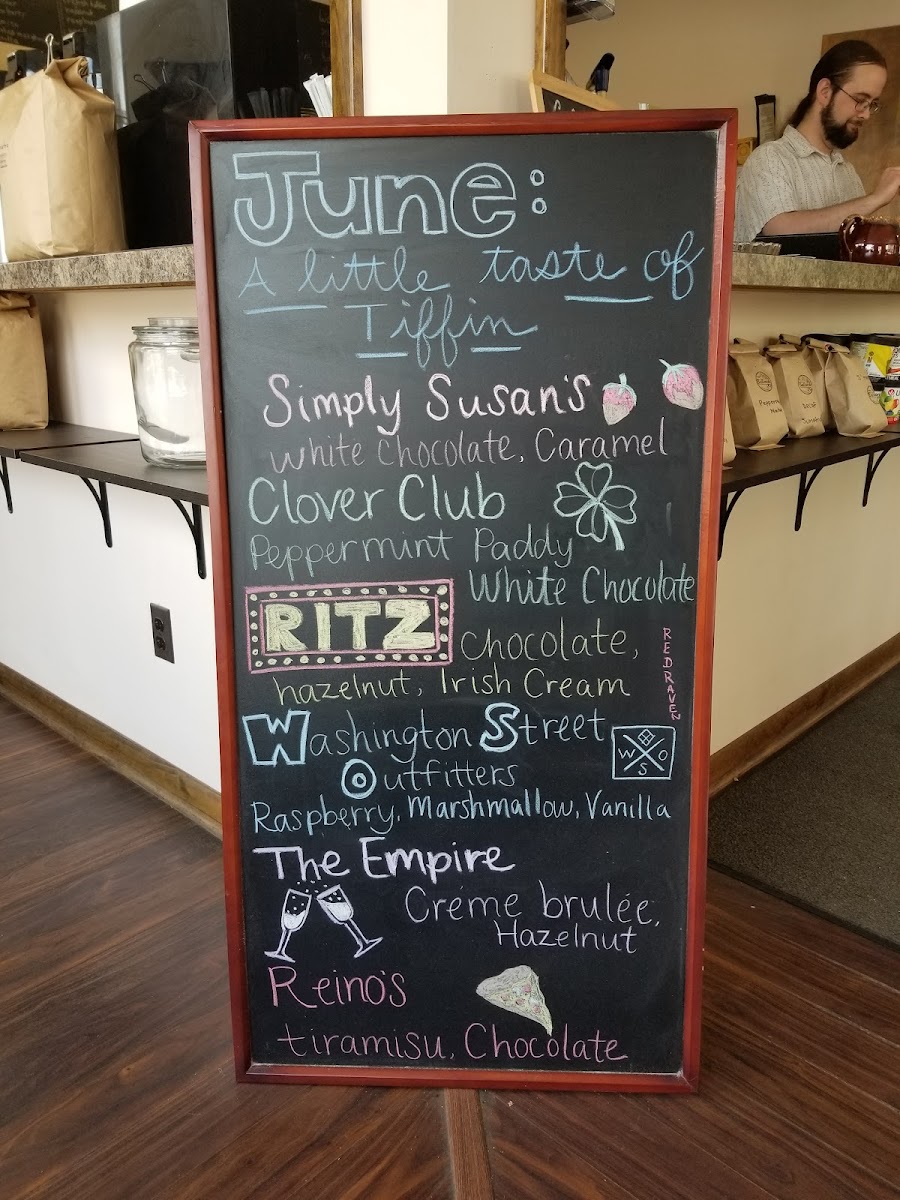 June:
A little taste of
Tiffin
Simply Susan's
White Chocolate, Caramel
Clover Club
Peppermint Paddy
White Chocolate
RITZ
Chocolate,
hazelnut, Irish Cream
REDRAVEN
Washington Street
Outfitters
W O
S
Raspberry, Marshmallow, Vanilla
The Empire
Créme brulée,
Hazelnut
Reino's
tiramisu, Chocolate